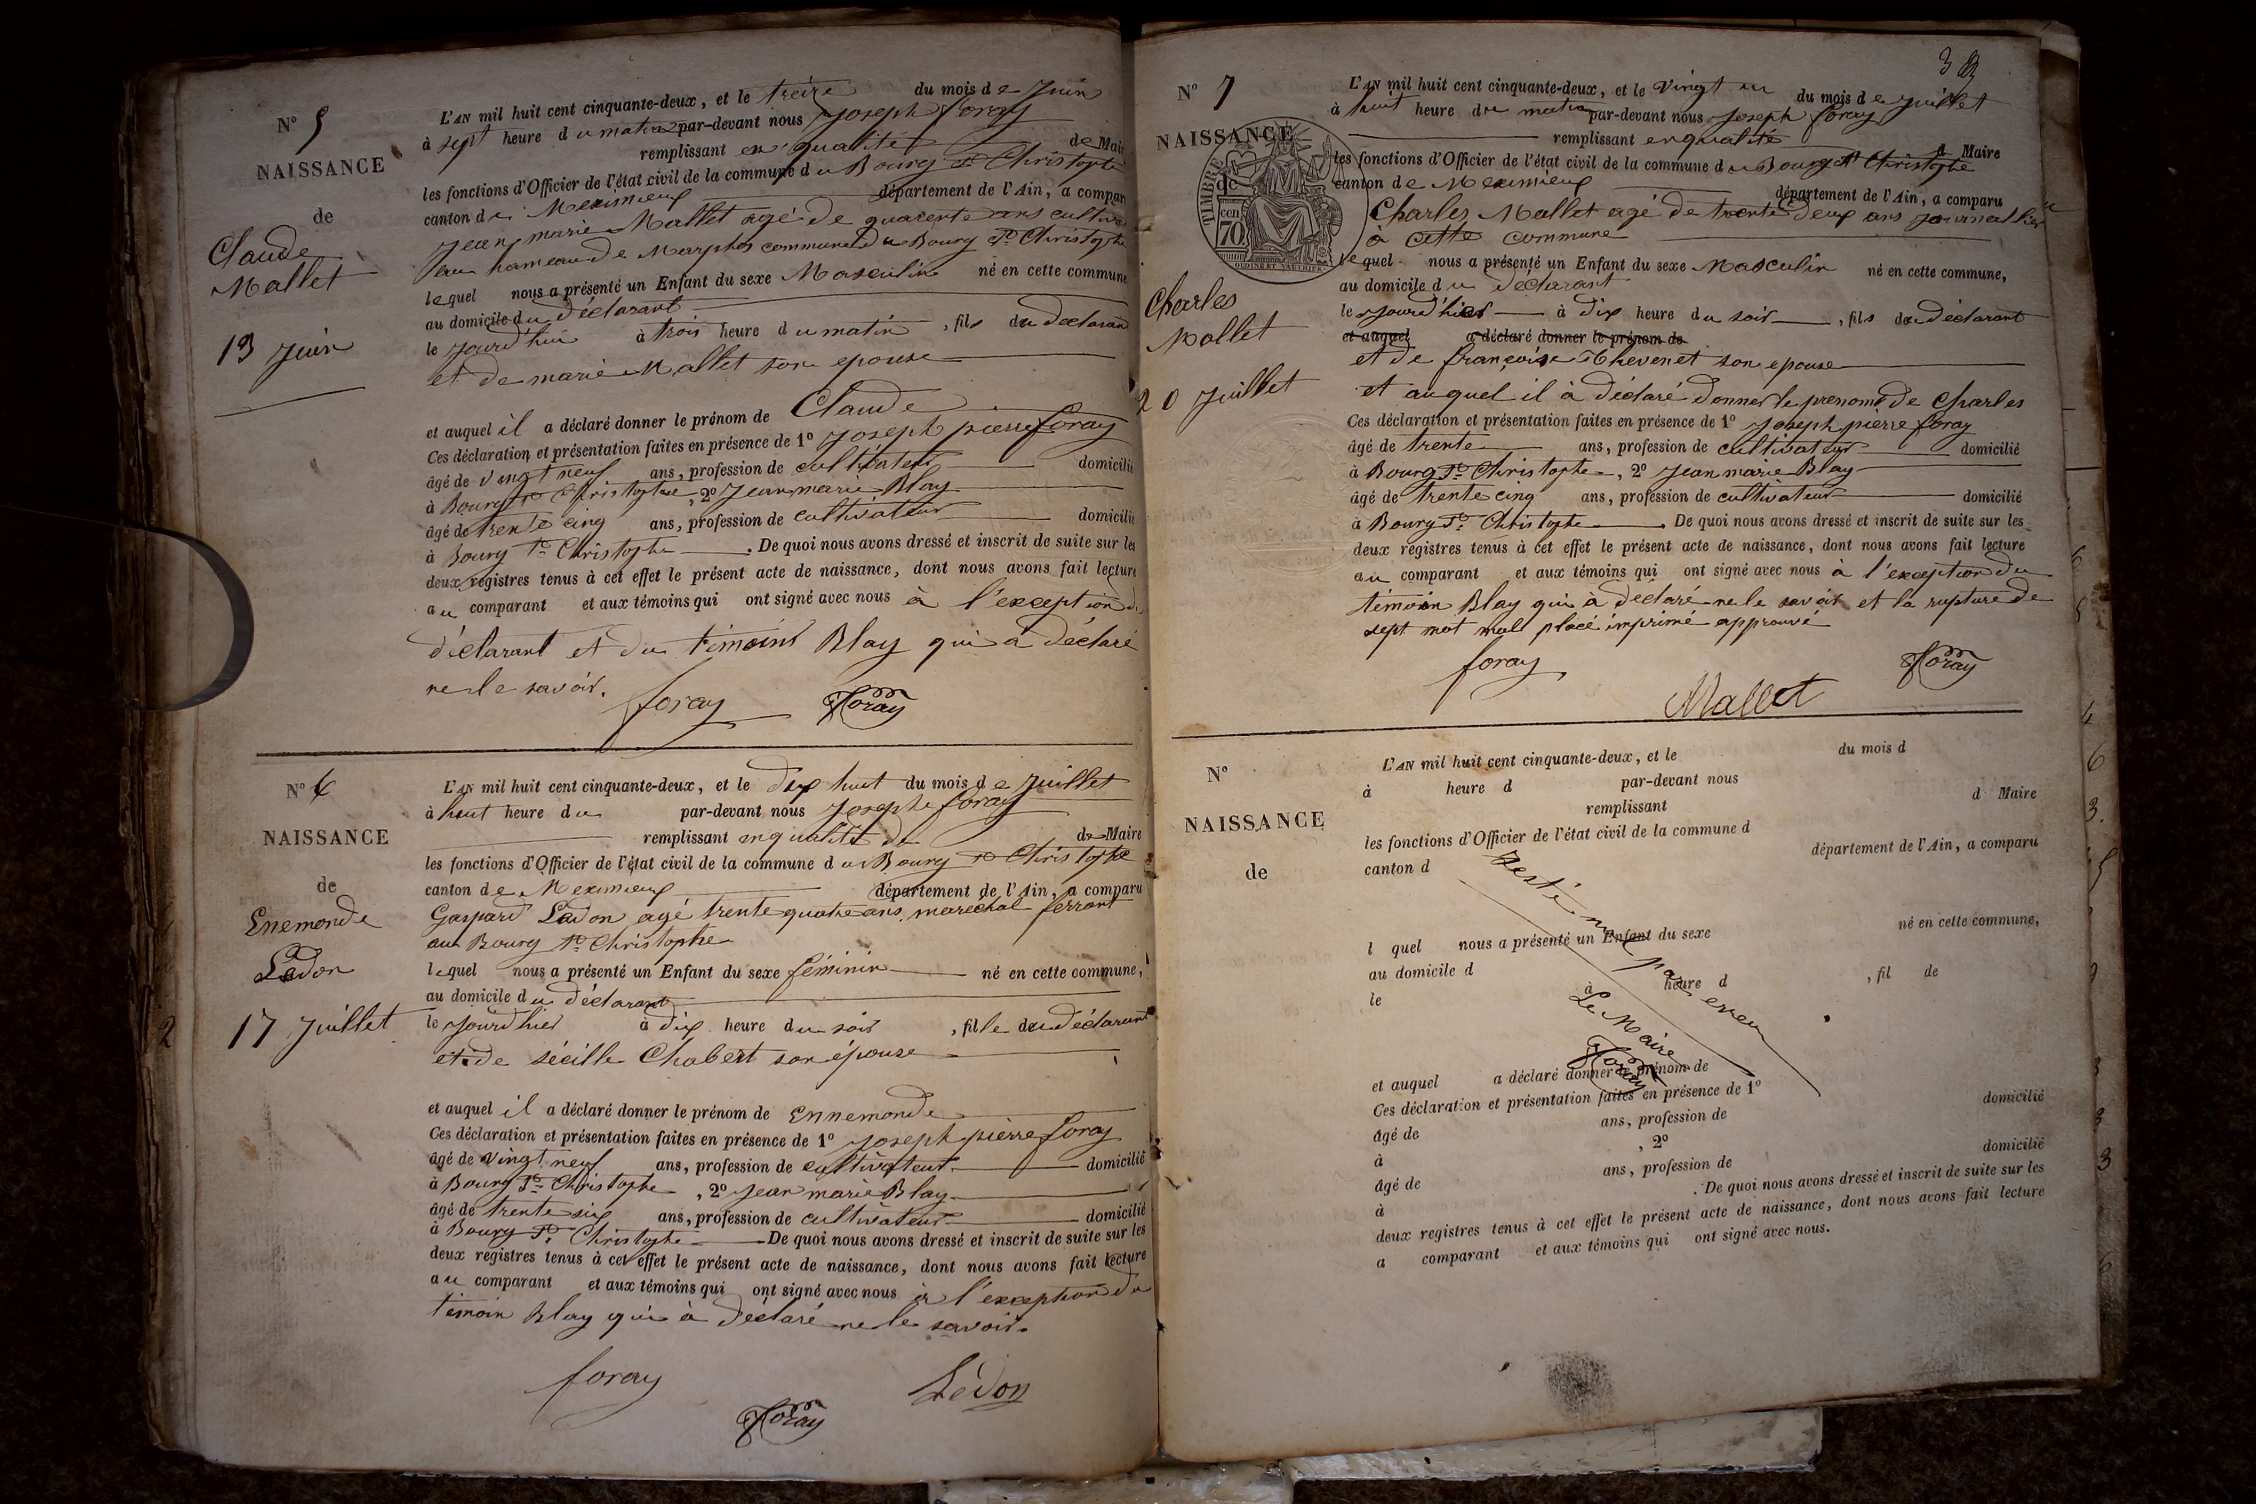 N° 5
NAISSANCE
de
Claude
Mallet
13 Juin
L'AN mil huit cent cinquante-deux, et le treize du mois de Juin
à sept heure du matin par-devant nous Joseph foray
remplissant en qualité de Mair
les fonctions d'Officier de l'état civil de la commune du Bourg St Christophe
canton de Meximieux département de l'Ain, a compar
Jean marie Mallet agé de quarente ans cultiva
au hameau de Marphos commune du Bourg St Christophe
lequel nous a présenté un Enfant du sexe Masculin né en cette commune
au domicile du déclarant
le jourd'hui à trois heure du matin, fils du déclaran
et de marie Mallet son epouse
et auquel il a déclaré donner le prénom de Claude
Ces déclaration et présentation faites en présence de 1° Joseph pierre foray
âgé de vingt neuf ans, profession de cultivateur domicilié
à Bourg St Christophe, 2° Jean marie Blay
âgé de trente cinq ans, profession de cultivateur domicilié
à Bourg St Christophe. De quoi nous avons dressé et inscrit de suite sur les
deux registres tenus à cet effet le présent acte de naissance, dont nous avons fait lecture
au comparant et aux témoins qui ont signé avec nous à l'exception du
déclarant et du témoins Blay qui à déclaré
ne le savoir.
foray Foray
N° 6
NAISSANCE
de
Enemonde
Ledon
17 Juillet
L'AN mil huit cent cinquante-deux, et le dix huit du mois de Juillet
à huit heure du par-devant nous Josephe foray
remplissant en qualité de de Maire
les fonctions d'Officier de l'état civil de la commune du Bourg St Christophe
canton de Meximieux département de l'Ain, a comparu
Gaspard Ledon agé trente quatre ans marechal ferrant
au Bourg St Christophe
lequel nous a présenté un Enfant du sexe féminin né en cette commune,
au domicile du déclarant
le jourd'hier à dix heure du soir, fille du déclarant
et de sécille Chabert son épouse
et auquel il a déclaré donner le prénom de Ennemonde
Ces déclaration et présentation faites en présence de 1° Joseph pierre foray
âgé de vingt neuf ans, profession de cultivateur domicilié
à Bourg St Christophe, 2° Jean marie Blay
âgé de trente six ans, profession de cultivateur domicilié
à Bourg St Christophe De quoi nous avons dressé et inscrit de suite sur les
deux registres tenus à cet effet le présent acte de naissance, dont nous avons fait lecture
au comparant et aux témoins qui ont signé avec nous à l'exception du
témoin Blay qui à déclaré ne le savoir.
foray Lédon
Foray
33
N° 7
NAISSANCE
TIMBRE
de
cen
70
Charles
Mallet
20 Juillet
L'AN mil huit cent cinquante-deux, et le vingt un du mois de Juillet
à huit heure du matin par-devant nous Joseph foray
remplissant en qualité d Maire
les fonctions d'Officier de l'état civil de la commune du Bourg St Christophe
canton de Meximieux département de l'Ain, a comparu
Charles Mallet agé de trente deux ans journallier
à cette commune
lequel nous a présenté un Enfant du sexe Masculin né en cette commune,
au domicile du déclarant
le jourd'hier à dix heure du soir, fils du déclarant
et auquel a déclaré donner le prénom de
et de françoise Thevenet son epouse
et auquel il à déclaré donner le prenoms de Charles
Ces déclaration et présentation faites en présence de 1° Joseph pierre foray
âgé de trente ans, profession de cultivateur domicilié
à Bourg St Christophe, 2° Jean marie Blay
âgé de trente cinq ans, profession de cultivateur domicilié
à Bourg St Christophe. De quoi nous avons dressé et inscrit de suite sur les
deux registres tenus à cet effet le présent acte de naissance, dont nous avons fait lecture
au comparant et aux témoins qui ont signé avec nous à l'exception du
témoin Blay qui à déclaré ne le savoir et la rupture de
sept mot mall placé imprimé approuvé
foray Mallet Foray
N°
NAISSANCE
de
L'AN mil huit cent cinquante-deux, et le du mois d
à heure d par-devant nous
remplissant d Maire
les fonctions d'Officier de l'état civil de la commune d
canton d département de l'Ain, a comparu
l quel nous a présenté un Enfant du sexe né en cette commune,
au domicile d
le à heure d , fil de
et auquel a déclaré donner le prénom de
Ces déclaration et présentation faites en présence de 1°
âgé de ans, profession de domicilié
à , 2°
âgé de ans, profession de domicilié
à . De quoi nous avons dressé et inscrit de suite sur les
deux registres tenus à cet effet le présent acte de naissance, dont nous avons fait lecture
a comparant et aux témoins qui ont signé avec nous.
Resté nul par erreur
Le Maire
Foray